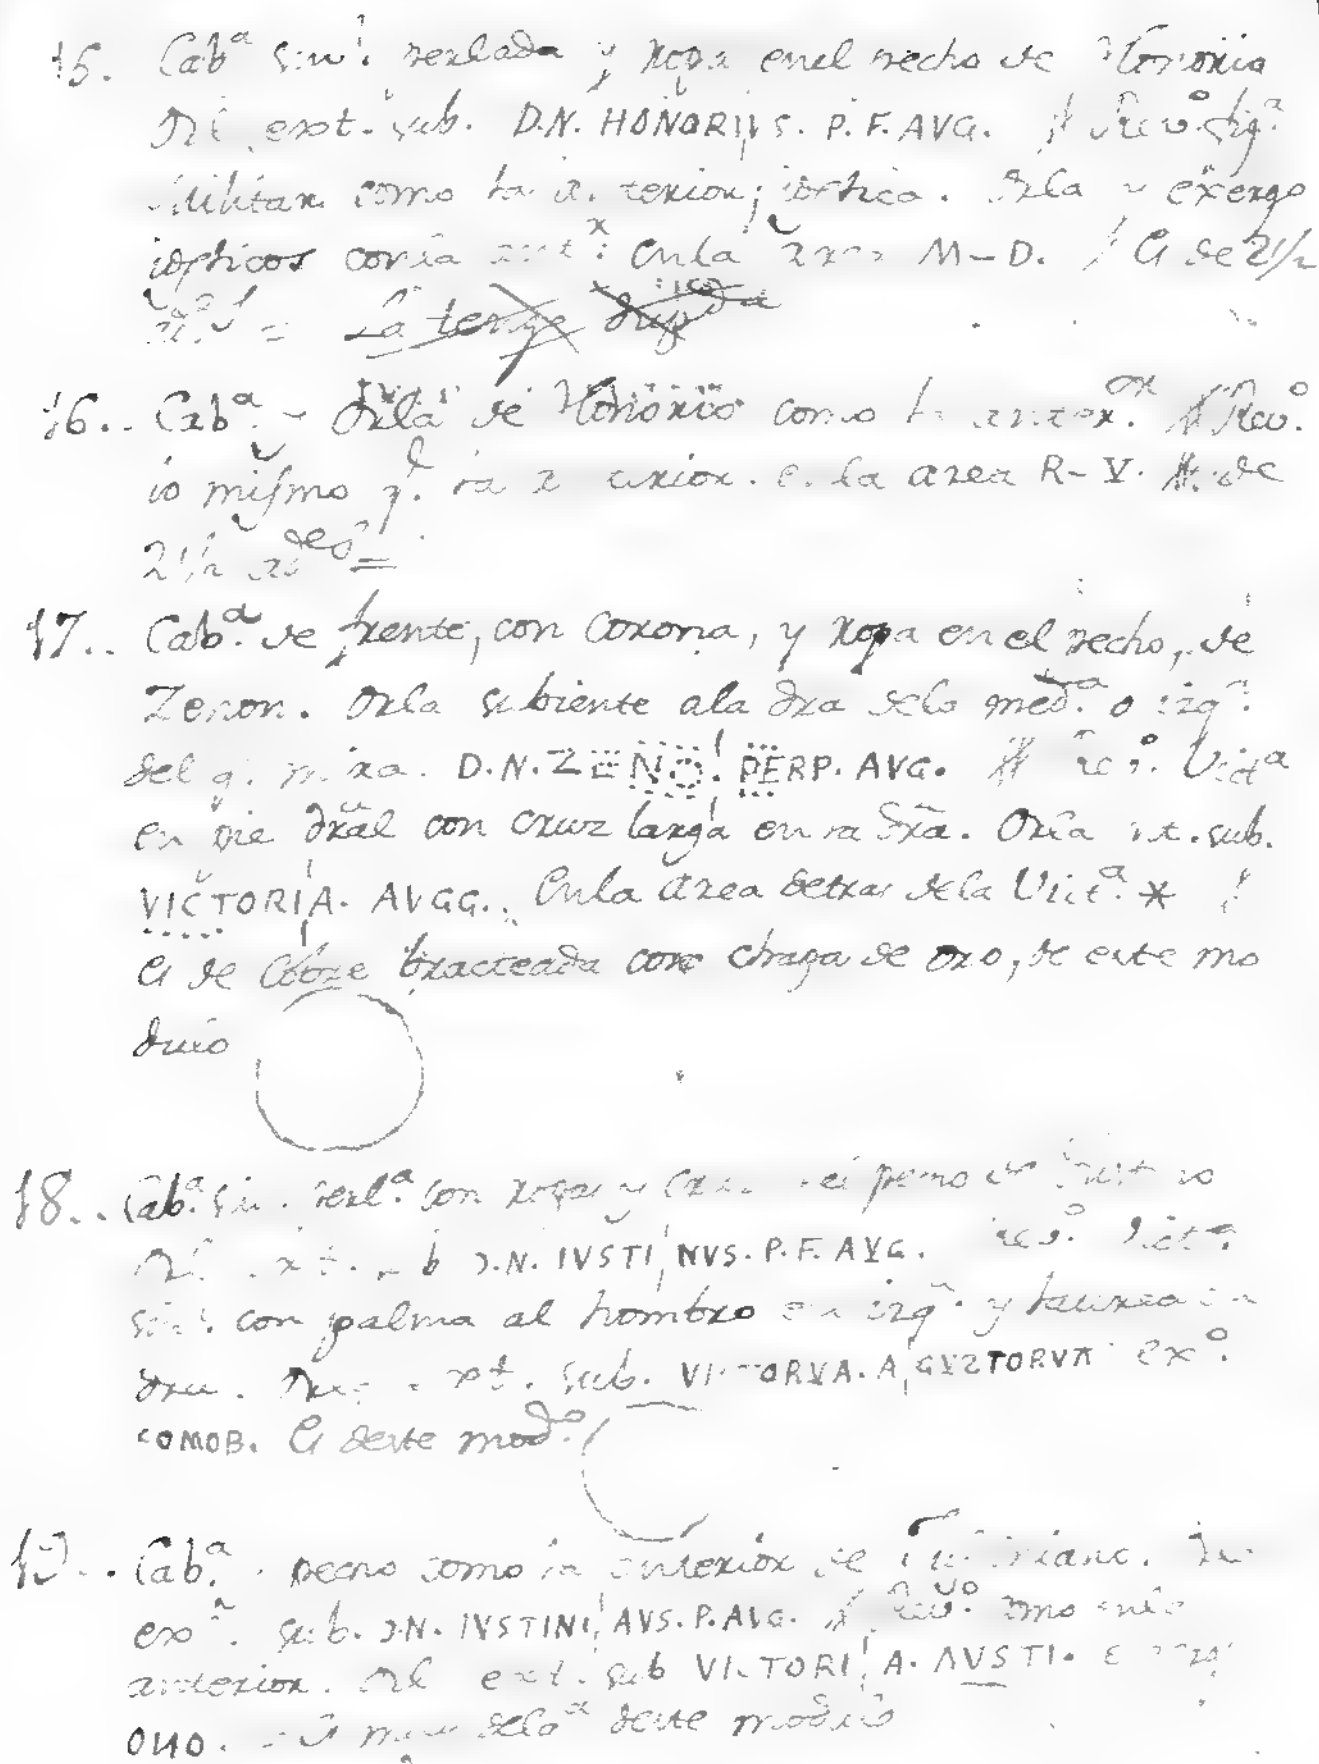 15. Cab.ª sin.! perlada y ropa en el pecho de Honorio
Orl. ext. sub. D.N. HONORI¦VS. P.F. AVG. # Rev.º fig.ª
Militar como la anterior, idéntica. Orla y exergo
idénticos con la ant.ʳ: En la area M–D. / Es de 2½
=
16.. Cab.ª y Orla de Honorio como la anter.ᵒʳ # Rev.º
lo mismo q.ᵉ la anterior. en la area R–V. #. de
2½ ad.ᵉˢ =
17.. Cab.ª de frente, con corona, y ropa en el pecho, de
Zenon. Orla subiente a la dra de la med.ª o izq.ª
del q. mira. D.N. ZENO¦ PERP. AVG. # Rev.º Vict.ª
en pie dral con cruz larga en la dra. Orla ext. sub.
VICTORI¦A. AVGG.. En la area detras de la Vict.ª *
Es de Cobre bracteada con chapa de oro, de este mo
dulo
18.. Cab.ª sin. perl.ª con ropa y cruz al pecho de Justino
Orl. ext. sub D.N. IVSTI¦NVS. P.F. AVG. Rev.º Vict.ª
sin. con palma al hombro en izq.ª y laurea en
dra. ext. sub. VI TORVA. A¦GVSTORVA ex.º
COMOB. Es deste mod.º
19.. Cab.ª pecho como la anterior de Justiniano.
ex.ª sub. D.N. IVSTINI¦AVS. P. AVG. # Rev.º como en la
anterior. Orl. ext. sub VICTORI¦A. AVSTI.
ONO. deste modulo